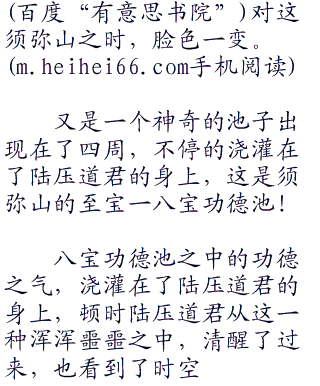 (百度“有意思书院”)对这
须弥山之时，脸色一变。
(m.heihei66.com手机阅读)
又是一个神奇的池子出
现在了四周，不停的浇灌在
了陆压道君的身上，这是须
弥山的至宝一八宝功德池！
八宝功德池之中的功德
之气，浇灌在了陆压道君的
身上，顿时陆压道君从这一
种浑浑噩噩之中，清醒了过
来，也看到了时空